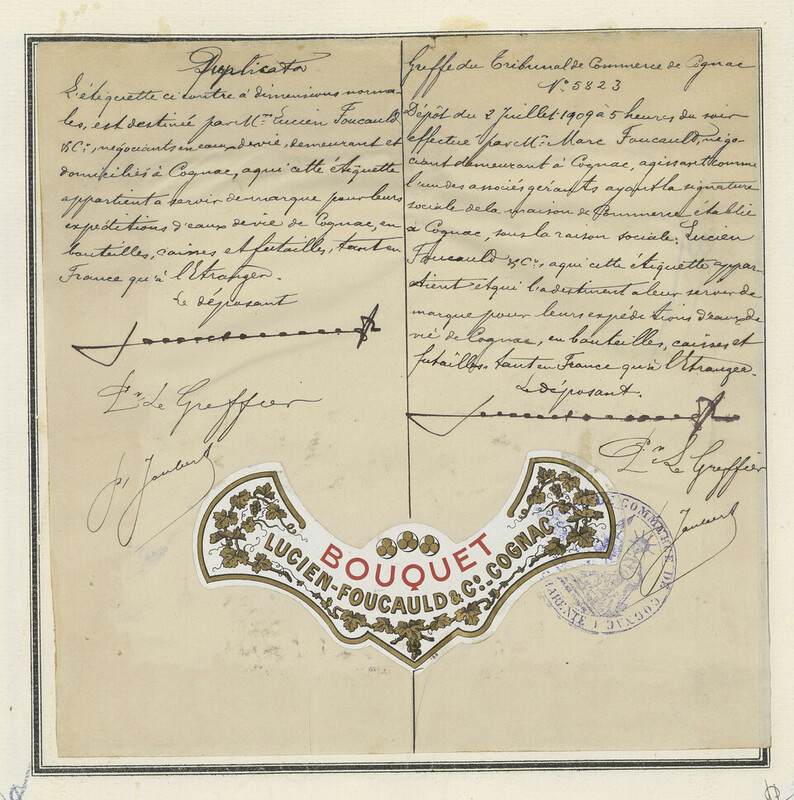 Duplicata
L'étiquette ci contre à dimensions norma-
les, est destinée par Mrs Lucien Foucauld
& Cie, négociants en eaux de vie, demeurant et
domiciliés à Cognac, a qui cette étiquette
appartient a servir de marque pour leurs
expéditions d'eaux de vie de Cognac, en
bouteilles, caisses et futailles, tant en
France qu'à l'Etranger.
Le déposant
Pr Le Greffier
Joubert
Greffe du Tribunal de Commerce de Cognac
N° 5823
Dépôt du 2 Juillet 1909 à 5 heures du soir
effectué par Mr Marc Foucauld, négo-
ciant demeurant à Cognac, agissant comme
l'un des associés gérants ayant la signature
sociale de la maison de Commerce établie
à Cognac, sous la raison sociale: Lucien
Foucauld & Cie, a qui cette étiquette appar-
tient et qui la destinent a leur servir de
marque pour leurs expéditions d'eaux de
vie de Cognac, en bouteilles, caisses et
futailles, tant en France qu'à l'Etranger.
Le déposant.
Pr Le Greffier
Joubert
BOUQUET
LUCIEN-FOUCAULD & Co. COGNAC
COMMERCE DE COGNAC